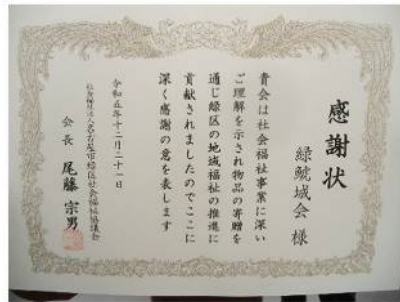 感謝状
緑鯱城会 様
貴会は社会福祉事業に深い
ご理解を示され物品の寄贈を
通じ緑区の地域福祉の推進に
貢献されましたのでここに
深く感謝の意を表します
令和五年十二月二十一日
社会福祉法人名古屋市緑区社会福祉協議会
会長 尾藤宗男